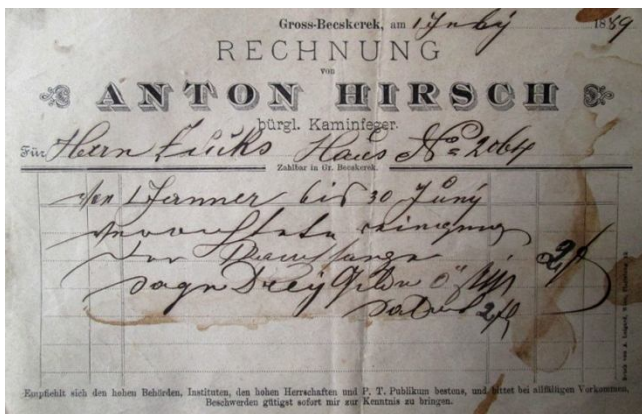 Gross-Becskerek, am 1 July 1889
RECHNUNG
von
ANTON HIRSCH
bürgl. Kaminfeger.
Für Herrn Haus No 2064
Zahlbar in Gr. Becskerek.
1 Janner bis 30 Juny
reinigung
der
sage Gulden 2 f
2 f
Empfiehlt sich den hohen Behörden, Instituten, den hohen Herrschaften und P. T. Publikum bestens, und bittet bei allfälligen Vorkommen,
Beschwerden gütigst sofort mir zur Kenntnis zu bringen.